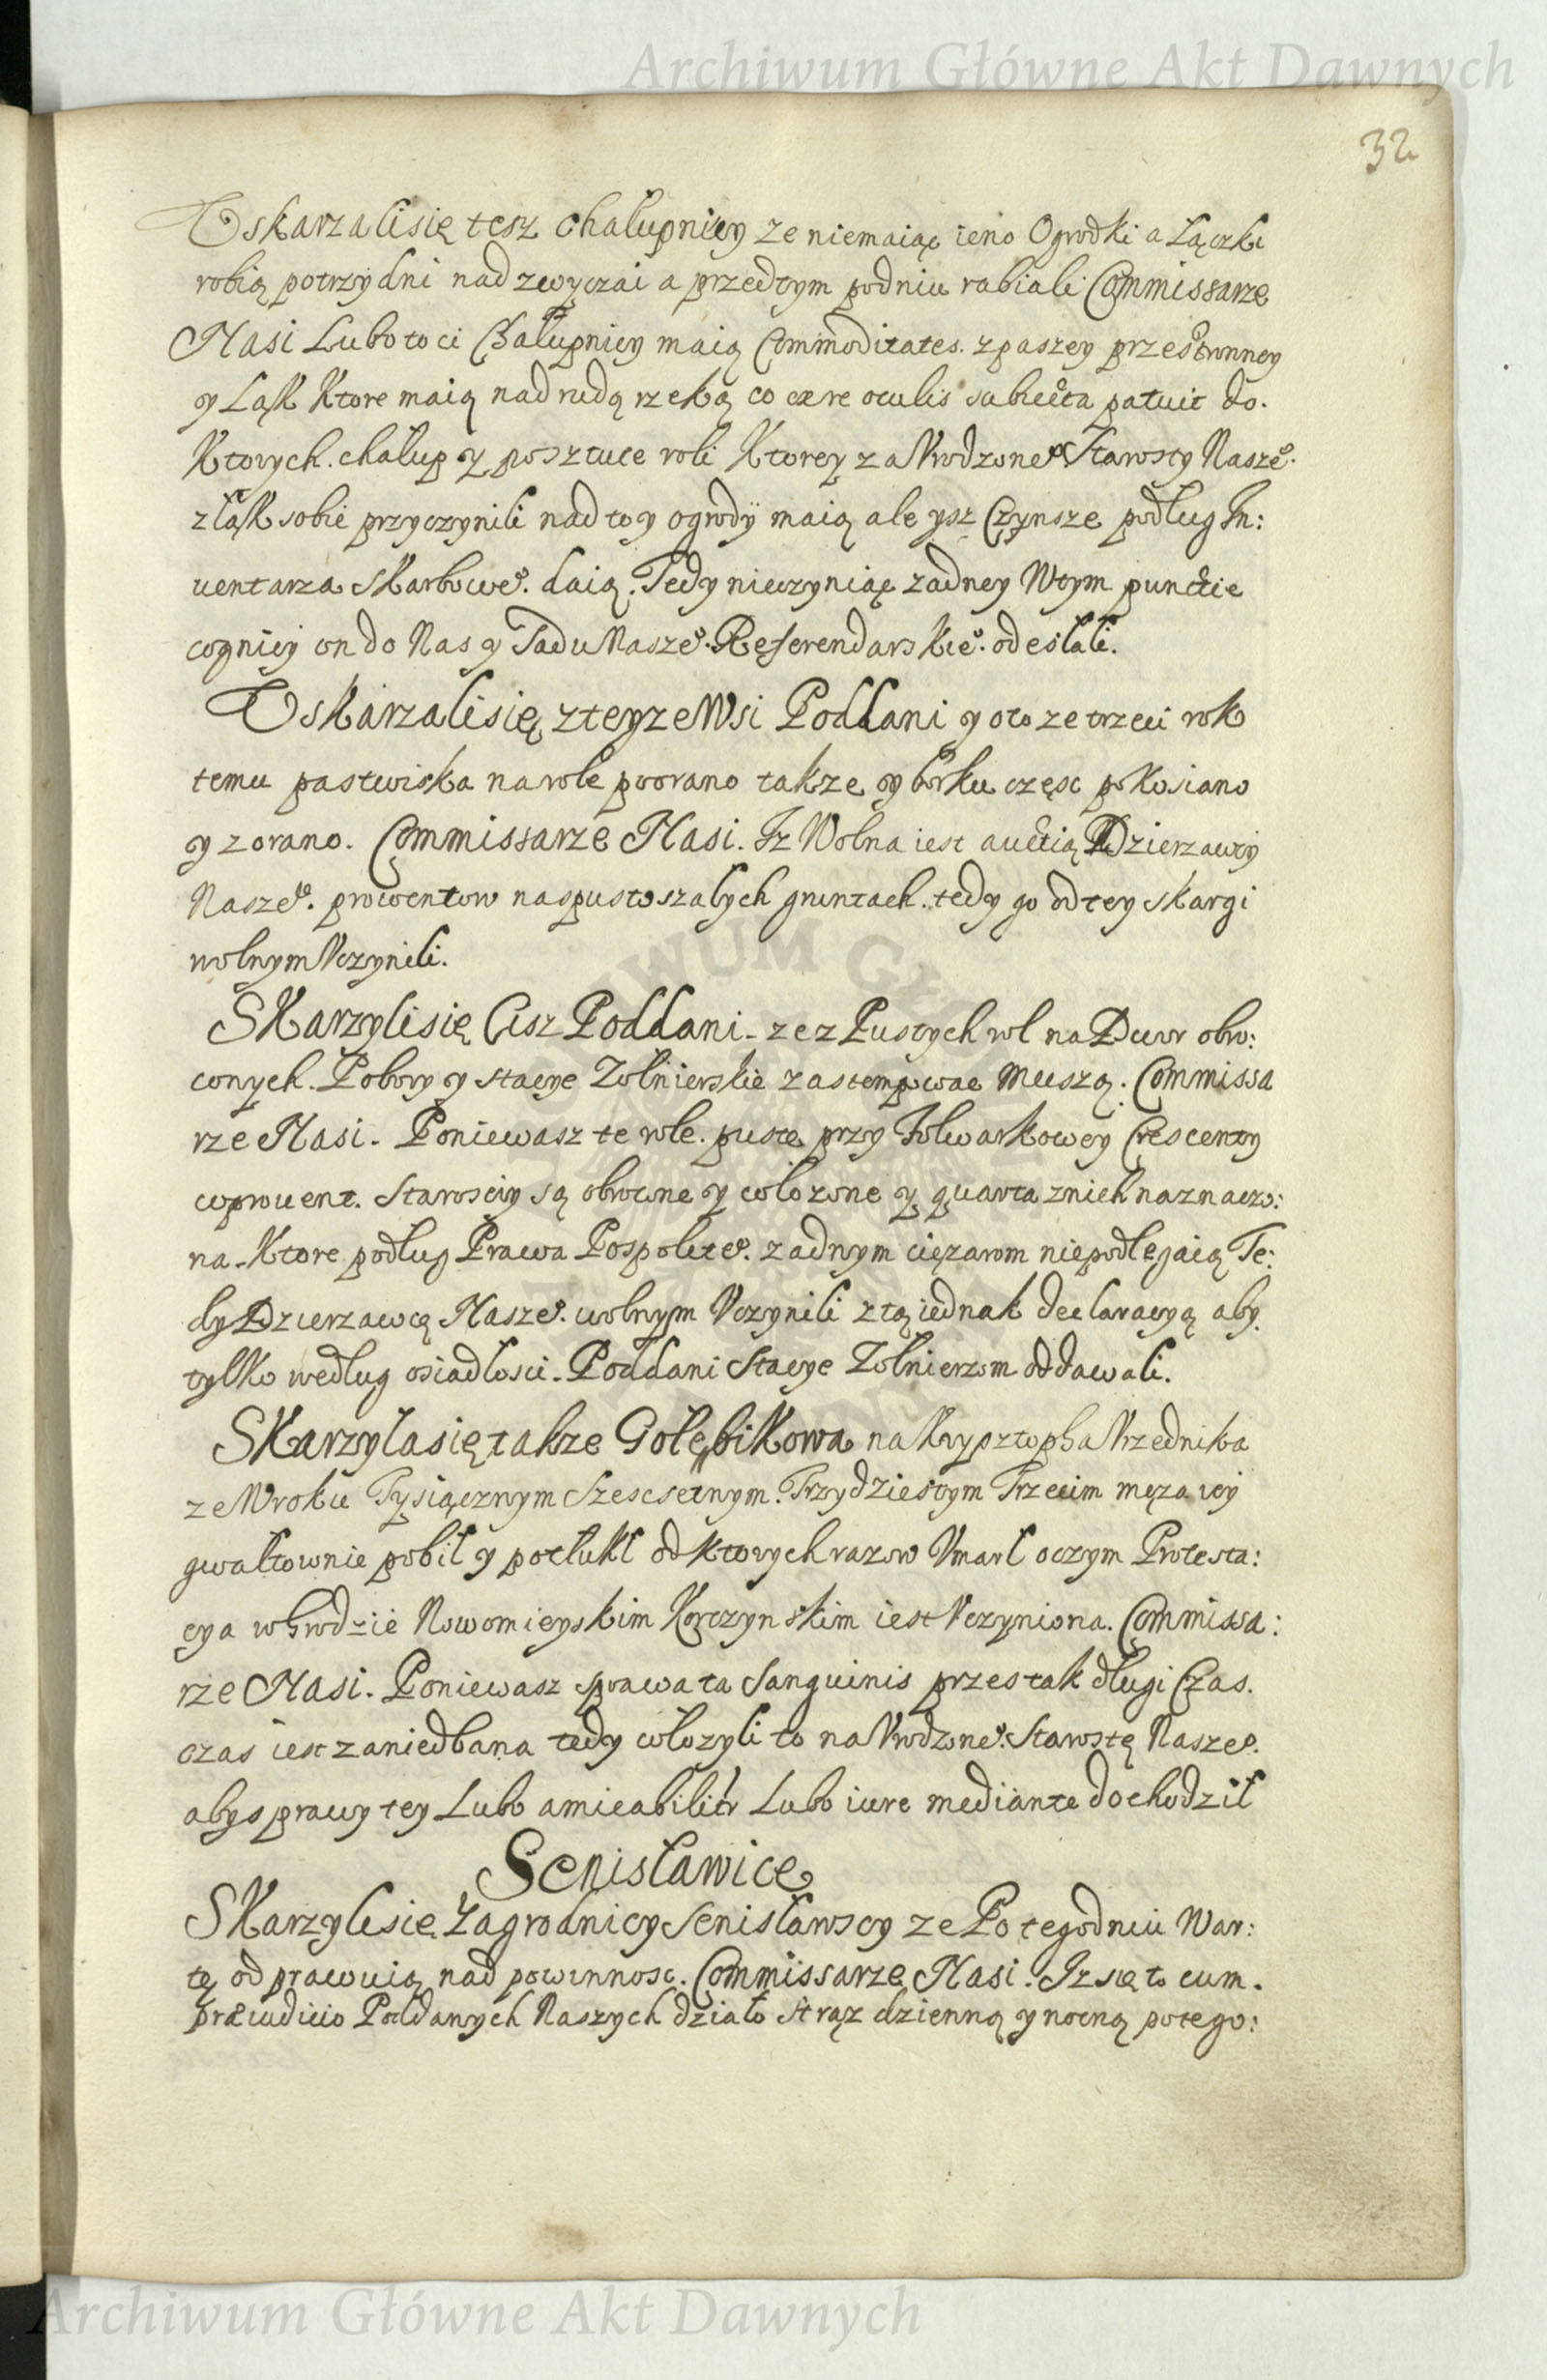 Archiwum Główne Akt Dawnych
32
Uskarzalisię tesz Chałupnicy ze niemaiąc ieno Ogrodki a Łączki
robią potrzy dni nad zwyczai a przedtym podniu rabiali Commissarze
Nasi Lubo to ci Chałupnicy maią Commoditates. z paszey przestronney
y Łąk Ktore maią nad rudą rzeką co ex re oculis subiecta patuit do.
Ktorych. chałup y posztuce roli Ktorey za Vrodzone. Starosty Nasze.
z łąk sobie przyczynili nad to y ogrody maią ale ysz Czynsze podług In:
uentarza Skarbowe. daią. Tedy nieczyniąc zadney Wtym punctie
cogniciy on do Nas y Sadu Nasze. Referendarskie. odesłali.
Uskarzalisię z teyze Wsi Poddani y oto ze trzeci rok
temu pastwiska na role poorano takze y borku częsc pokosiano
y zorano. Commissarze Nasi. Iz Wolna iest auctią Dzierzawcy
Nasze. prowentow naspustoszałych gruntach. tedy go od tey skargi
wolnym Vczynili.
Skarzylisię Cisz Poddani - ze z Pustych rol na Dwor obro:
conych. Pobory y stacye Zołnierskie zastempowac muszą. Commissa
rze Nasi. Poniewasz te role. puste przy Folwarkowey Crescenty
w prouent. Starosciy są obrocone y włozone y quarta znich naznaczo:
na - Ktore podług Prawa Pospolite. zadnym cięzarom niepodlegaią Te:
dy Dzierzawcę Nasze. wolnym Vczynili z tą iednak declaracyą aby.
tylko według osiadłosci. Poddani Stacye Zołnierzom oddawali.
Skarzyłasię takze Gołębikowa na Krysztopha Vrzednika
ze Wroku Tysiącznym Szescsetnym. Trzydziestym Trzecim męza iey
gwałtownie pobił y potłukł od ktorych razow Vmarł oczym Protesta:
cya w Grodzie Nowomieyskim Korczynskim iest Vczyniona. Commissa:
rze Nasi. Poniewasz sprawa ta Sanguinis przes tak długi Czas.
czas iest zaniedbana tedy włozyli to na Vrodzone. Starostę Nasze.
aby sprawy tey Lubo amicabiliter Lubo iure mediante dochodził
Senisławice
Skarzylisię Zagrodnicy Senisławscy ze Po tegodniu War:
tę odprawuią nad powinnosc. Commissarze Nasi. Iz się to cum.
præiudicio Poddanych Naszych działo Straz dzienną y nocną potego:
Archiwum Główne Akt Dawnych